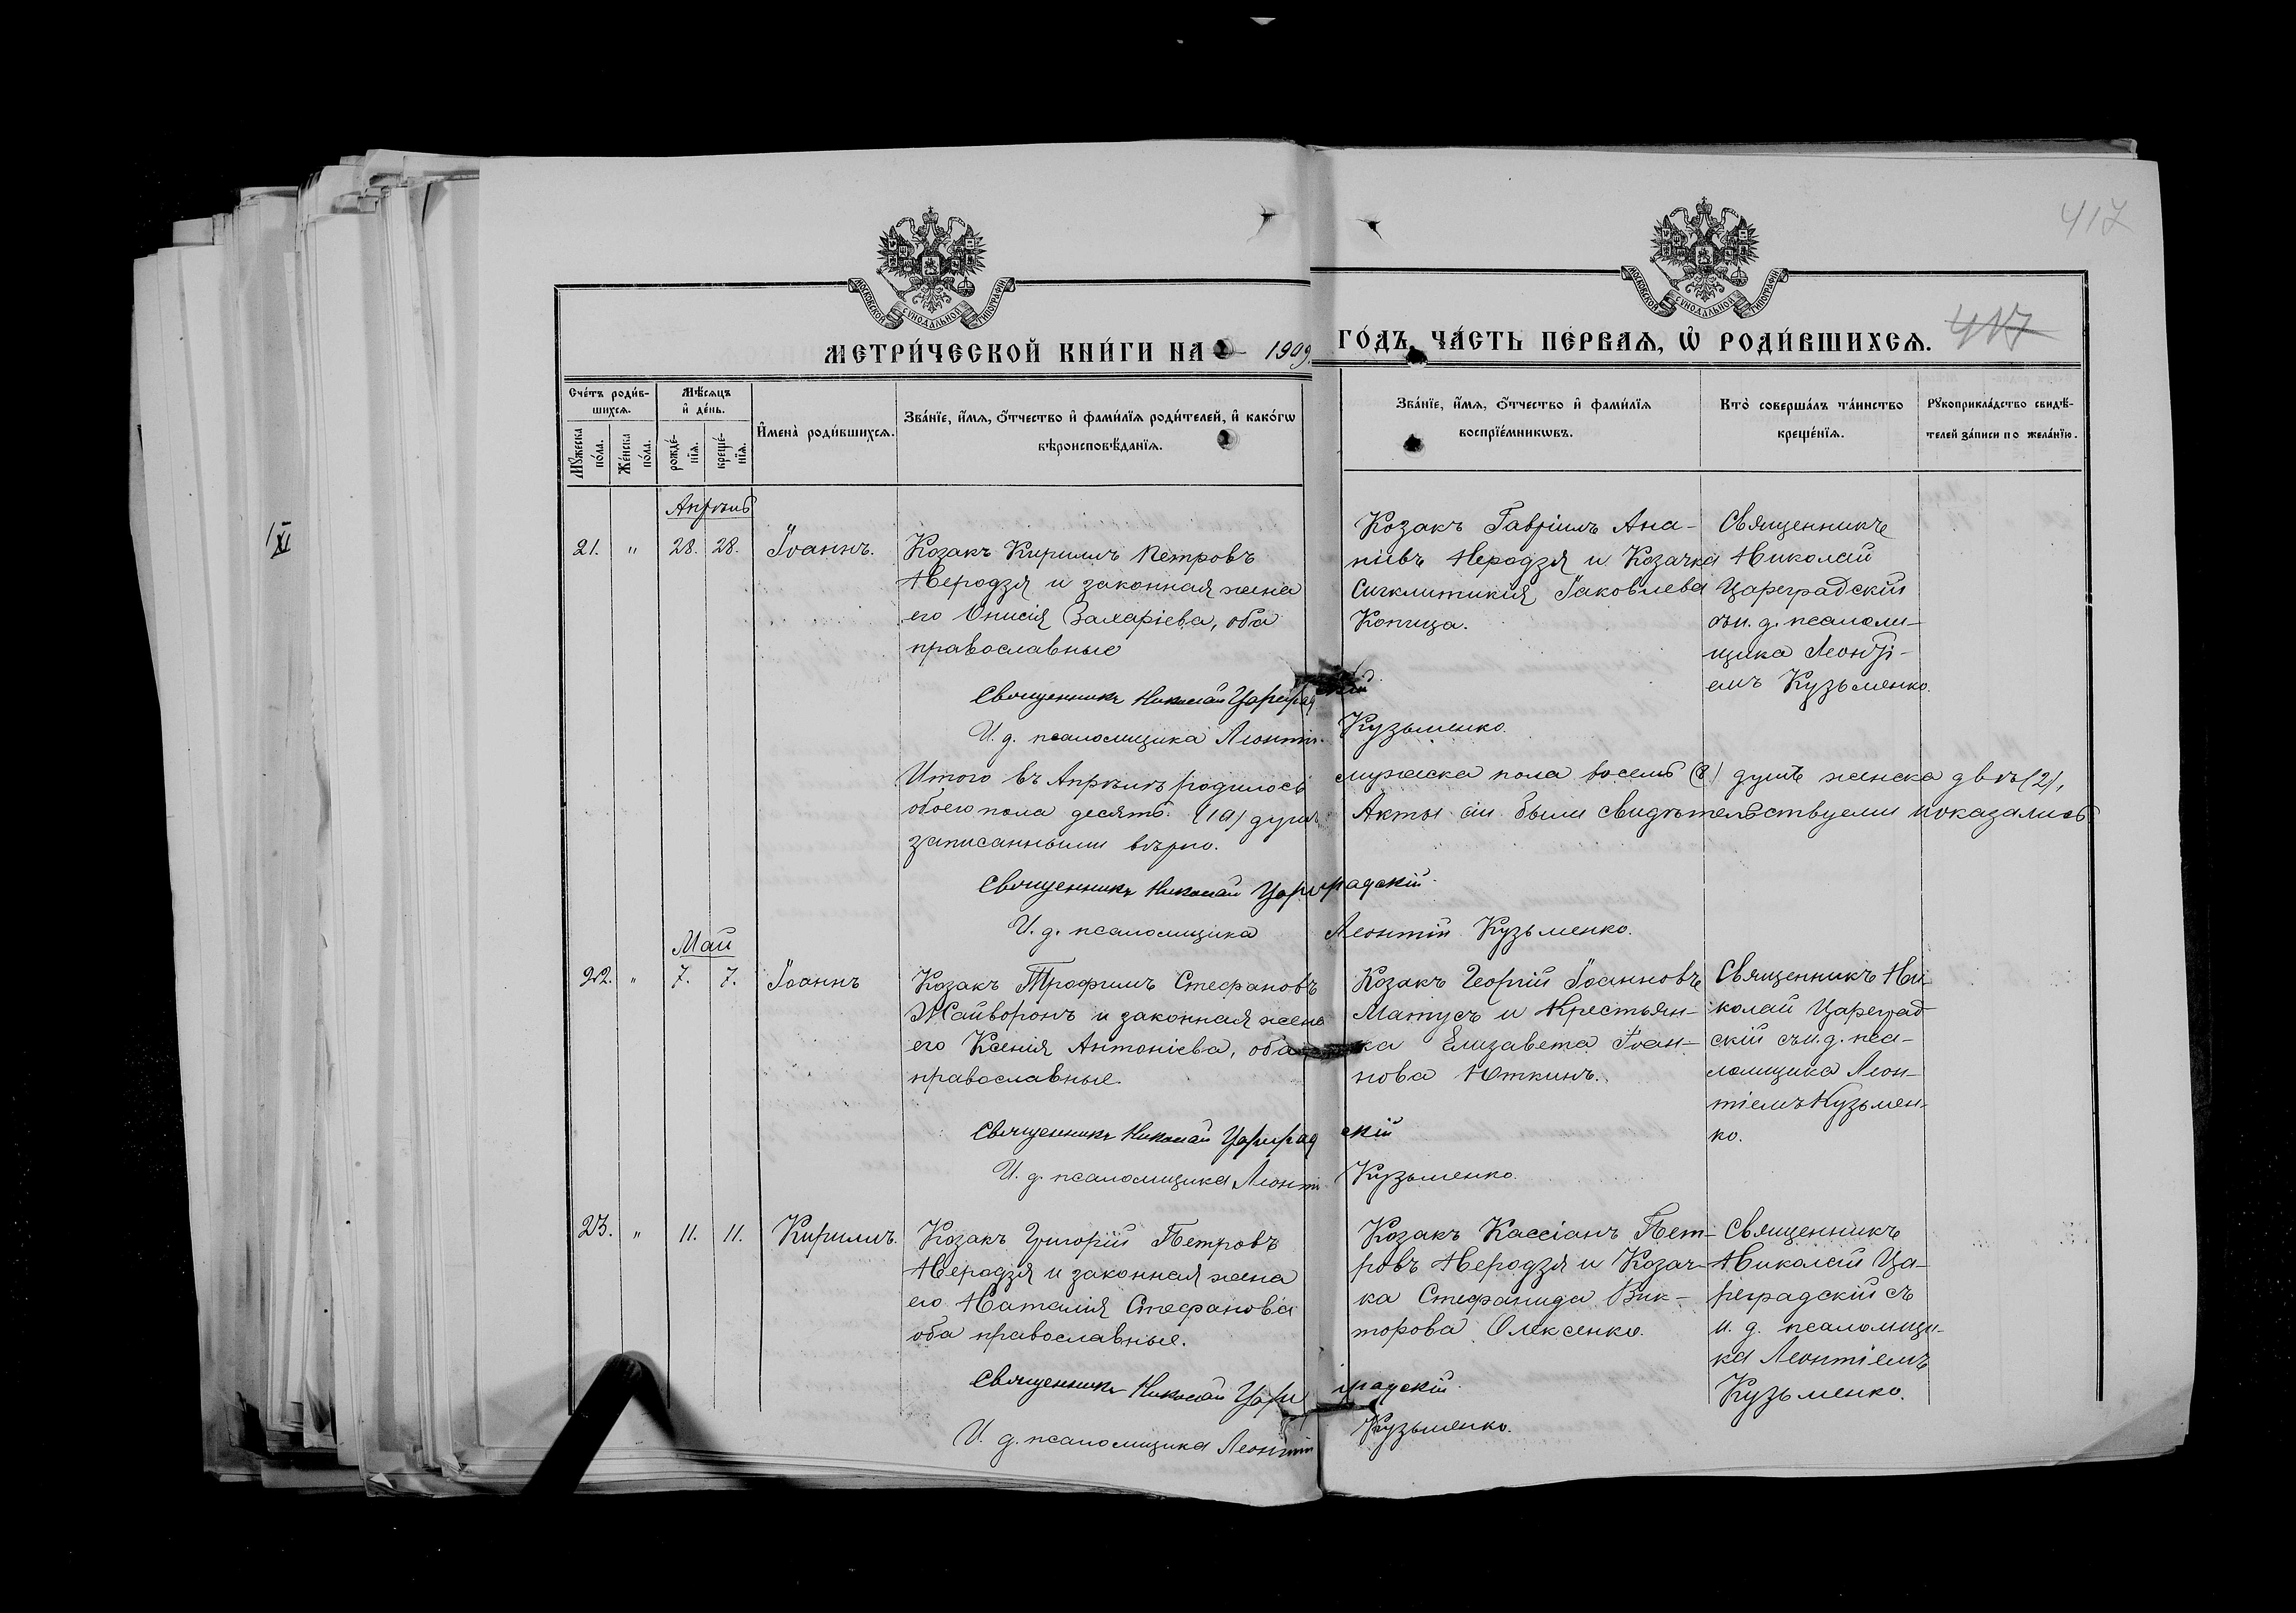 417
417
МОСКОВСКОЙ СѴНОДАЛЬНОЙ ТИПОГРАФІИ
МОСКОВСКОЙ СѴНОДАЛЬНОЙ ТИПОГРАФІИ
МЕТРИ́ЧЕСКОЙ КНИ́ГИ НА 1909
ГО́ДЪ, ЧА́СТЬ ПЕ́РВАЯ, Ѡ҆ РОДИ́ВШИХСЯ.
Сче́тъ роди́в-
шихся.
Мѣ́сяцъ
и҆ де́нь.
Мꙋ́жеска
по́ла.
Же́нска
по́ла.
рожде́-
нїя.
креще́-
нїя.
И҆мена̀ роди́вшихся.
Зва́нїе, и҆́мя, ѻ҆́тчество и҆ фами́лїя роди́телей, и҆ како́гѡ
вѣроисповѣ́данїя.
Зва́нїе, и҆́мя, ѻ҆́тчество и҆ фами́лїя
воспрїе́мникѡвъ.
Кто̀ соверша́лъ та́инство
креще́нїя.
Рꙋкоприкла́дство свидѣ́-
телей за́писи по жела́нїю.
Апрѣль
21. " 28. 28. Іоаннъ.
Козакъ Кириллъ Петровъ
Неродзя и законная жена
его Онисія Захаріева, оба
православные
Козакъ Гавріилъ Ана-
ніевъ Неродзя и Козачка
Сигклитикія Іаковлева
Копица.
Священникъ
Николай
Цареградскій
съ и. д. псалом-
щика Леонті-
емъ Кузьменко.
Священникъ Николай Цареградскій
И. д. псаломщика Леонтій Кузьменко.
Итого въ Апрѣлѣ родилось мужеска пола восемь (8) душъ женска двѣ (2),
обоего пола десять (10) душъ Акты сіи были свидѣтельствуеми и оказались
записанными вѣрно.
Священникъ Николай Цареградскій
И. д. псаломщика Леонтій Кузьменко.
Май
22. " 7. 7. Іоаннъ
Козакъ Трофимъ Стефановъ
Жайворонъ и законная жена
его Ксенія Антоніева, оба
православные.
Козакъ Георгій Іоанновъ
Матусъ и Крестьян-
ка Елизавета Іоан-
нова Юткинъ.
Священникъ Ни-
колай Цареград-
скій съ и. д. пса-
ломщика Леон-
тіемъ Кузьмен-
ко.
Священникъ Николай Цареградскій
И. д. псаломщика Леонтій Кузьменко.
23. " 11. 11. Кириллъ.
Козакъ Григорій Петровъ
Неродзя и законная жена
его Наталія Стефанова
оба православные.
Козакъ Кассіанъ Пет-
ровъ Неродзя и Козач-
ка Стефанида Вик-
торова Олексенко.
Священникъ
Николай Ца-
реградскій съ
и. д. псаломщи-
ка Леонтіемъ
Кузьменко.
Священникъ Николай Цареградскій
И. д. псаломщика Леонтій Кузьменко.